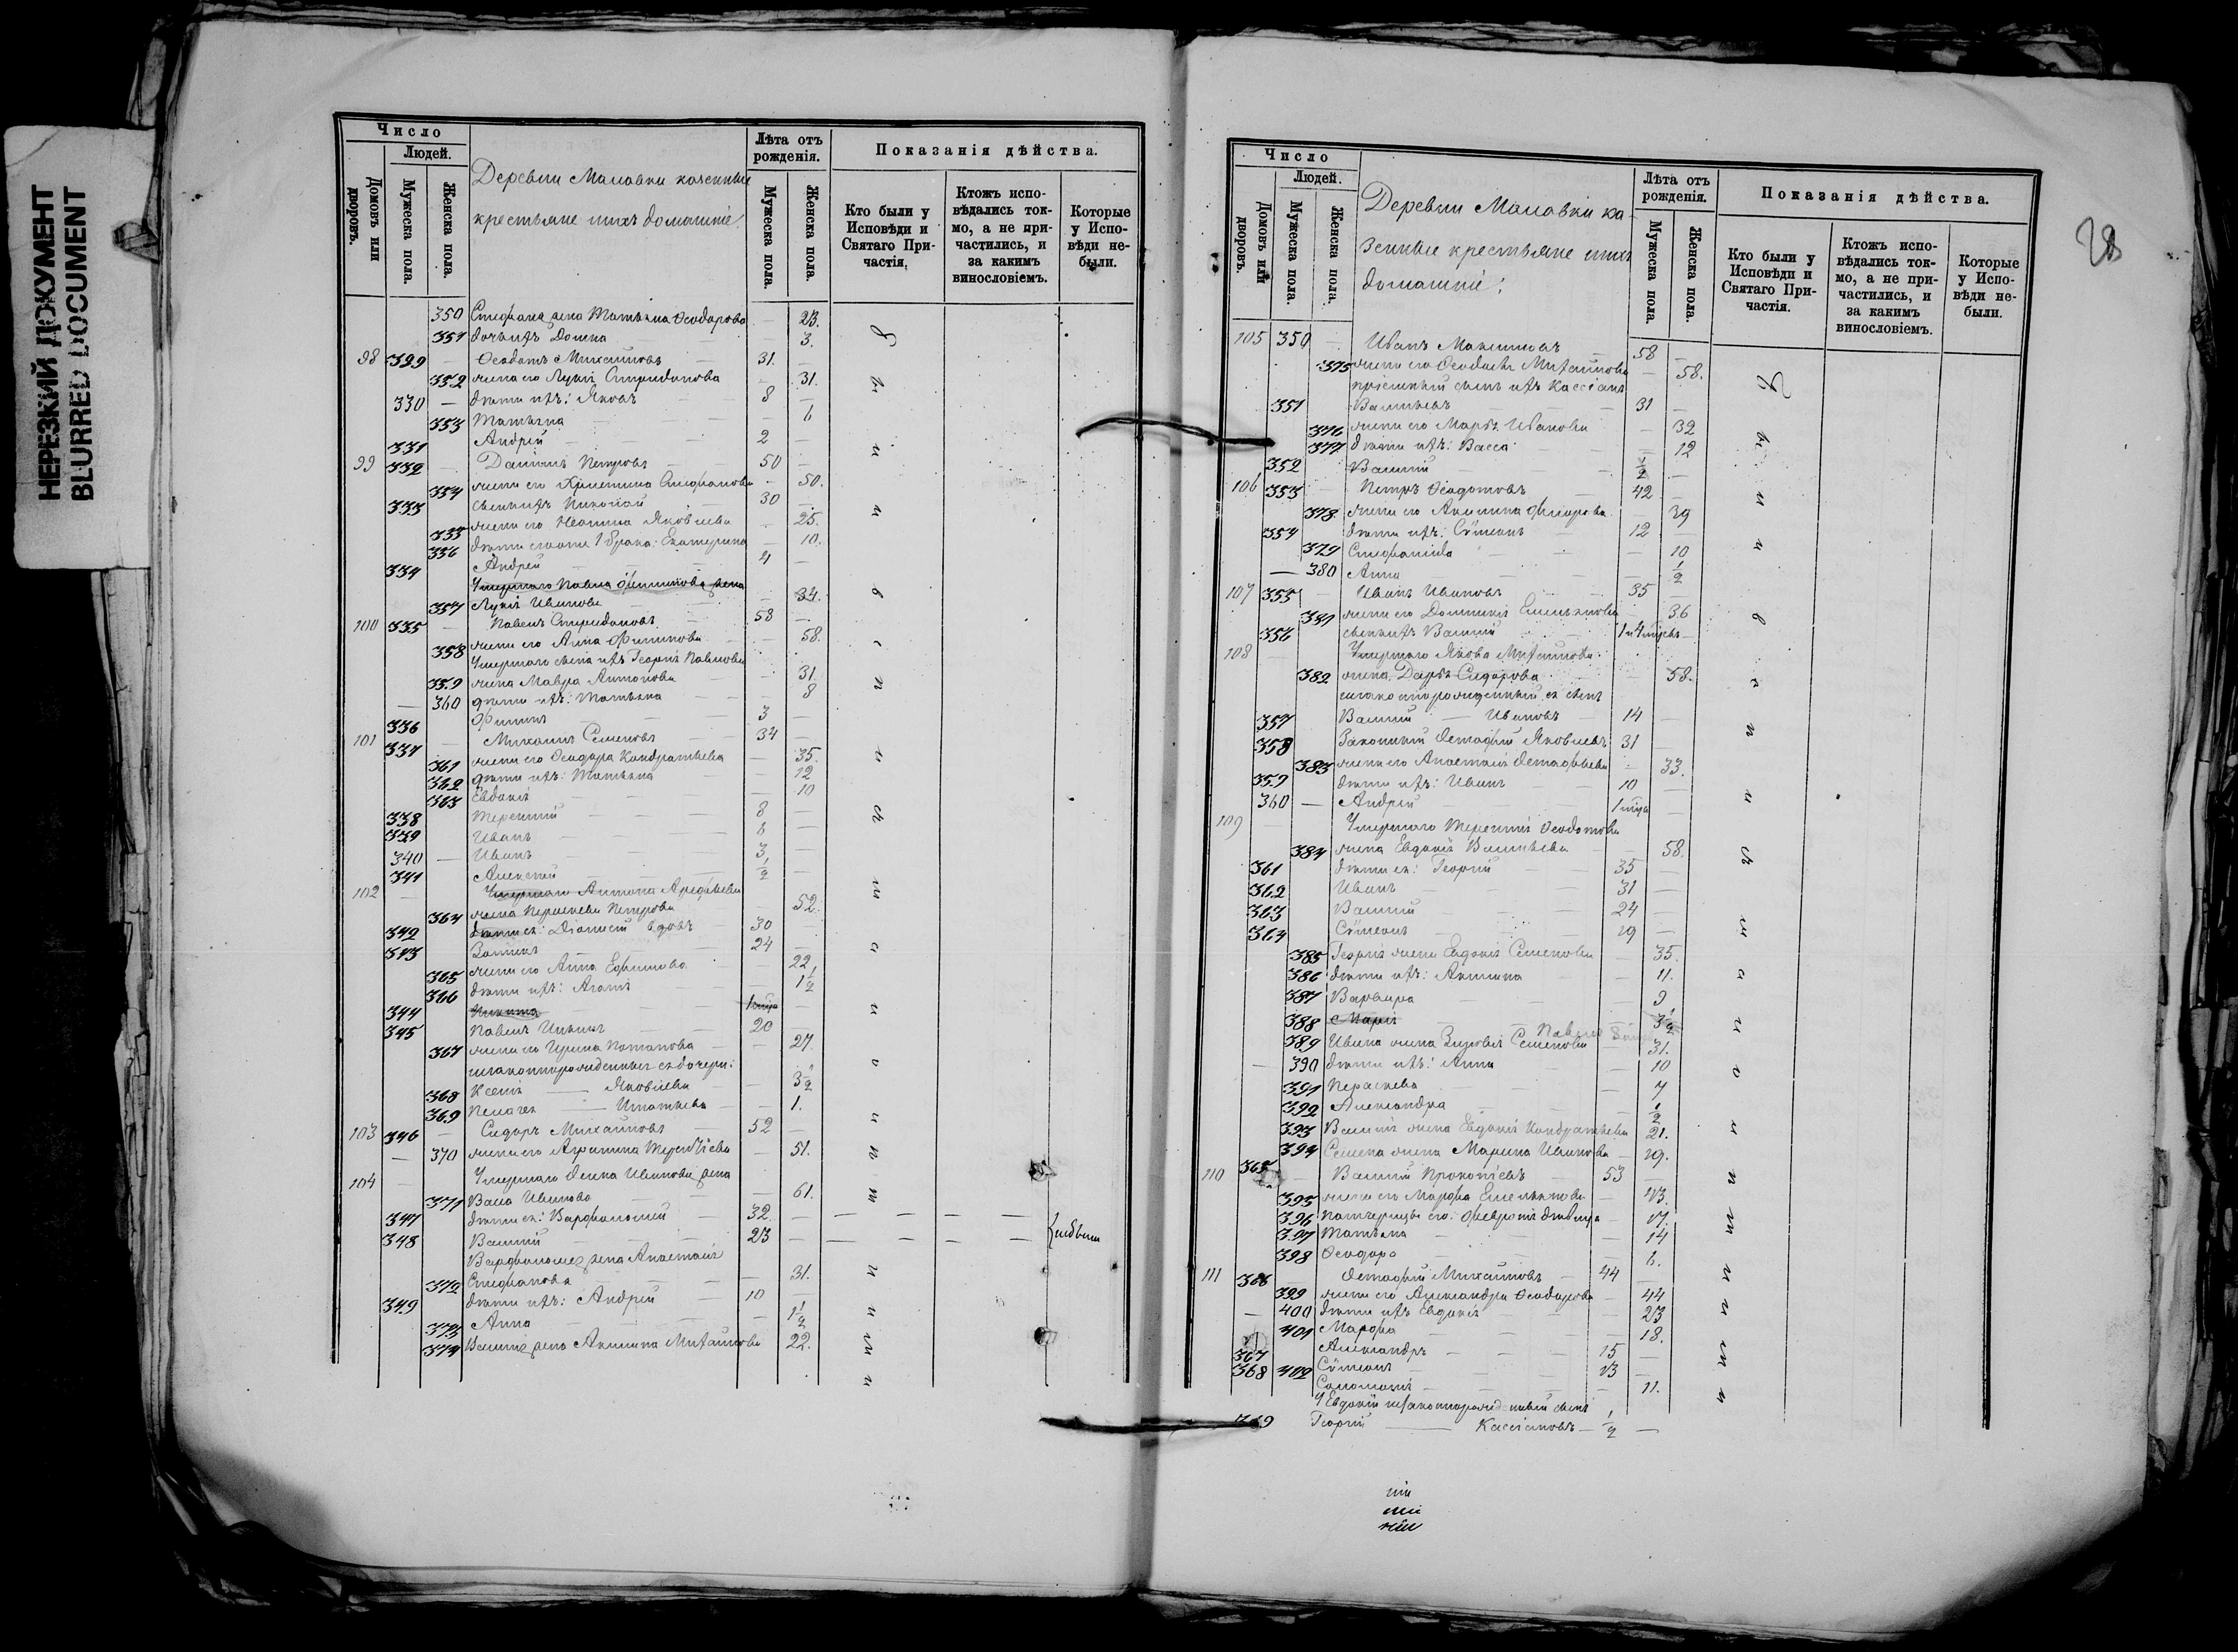 НЕРЕЗКИЙ ДОКУМЕНТ
BLURRED DOCUMENT
Число
Людей.
Домовъ или дворовъ.
Мужеска пола.
Женска пола.
Деревни Маловки казенные
крестьяне и ихъ домашніе
Лѣта отъ рожденія.
Мужеска пола.
Женска пола.
Показанія дѣйства.
Кто были у Исповѣди и Святаго Причастія.
Ктожъ исповѣдались токмо, а не причастились, и за какимъ винословіемъ.
Которые у Исповѣди небыли.
350 Стефана жена Татьяна Ѳеодорова — 23.
351 дочь ихъ Домна 3.
98 329 — Ѳеодотъ Михайловъ 31. —
352 жена его Лукія Спиридонова — 31.
330 — дѣти ихъ: Яковъ 8 —
353 Татьяна — 6
331 Андрей 2 —
99 332 — Даніилъ Петровъ 50 —
354 жена его Христина Стефанова — 50.
333 сынъ ихъ Николай 30 —
355 жена его Яковлева — 25.
356 дѣти 1 брака: Екатерина — 10.
334 Андрей 4 —
Умершаго Павла Филипова жена
357 Лукія Иванова — 34.
100 335 — Павелъ Спиридоновъ 58 —
358 жена его Анна Филипова — 58.
Умершаго сына ихъ Георгія Павлова
359 жена Мавра Антонова — 31.
— 360 дѣти ихъ: Татьяна — 8
336 Филипъ 3 —
101 337 — Михаилъ Семеновъ 34 —
361 жена его Ѳеодора Кондратьева — 35.
362 дѣти ихъ: Татьяна — 12
363 Евдокія — 10
338 Терентій 8 —
339 Иванъ 6 —
340 — Иванъ 3 —
341 Алексѣй 1/2 —
102 — Умершаго Антона Арефьева
364 жена Параскева Петрова — 52.
342 дѣти ея: Діонисій вдовъ 30 —
343 24 —
365 жена его Анна Ефимова — 22
366 дѣти ихъ: Агаѳія 1 1/2
344 Никита
345 Павелъ 20 —
367 жена его Ирина Потапова — 27.
незаконнорожденныя ея дочери:
368 Ксенія — Яковлева — 3 1/2
369 Пелагея — Игнатьева — 1.
103 346 — Сидоръ Михайловъ 52 —
— 370 жена его Агрипина Терентіева — 51.
104 — Умершаго Ивановы жена
371 Васса Иванова — 61.
347 дѣти ея: Варфоломей 32. —
348 Василій 23 — {небыли
Варфоломея жена Анастасія
372 Стефанова — 31.
349 дѣти ихъ: Андрей 10 —
373 Анна — 1 1/2
374 Василія жена Акилина Михайлова 22.
у
И
с
п
о
в
ѣ
д
и
28
Число
Людей.
Домовъ или дворовъ.
Мужеска пола.
Женска пола.
Деревни Маловки ка-
зенные крестьяне и ихъ
домашніе:
Лѣта отъ рожденія.
Мужеска пола.
Женска пола.
Показанія дѣйства.
Кто были у Исповѣди и Святаго Причастія.
Ктожъ исповѣдались токмо, а не причастились, и за какимъ винословіемъ.
Которые у Исповѣди небыли.
105 350 — Иванъ Максимовъ 58 —
375 жена его Ѳеодосія Михайлова — 58.
пріемный сынъ ихъ Кассіанъ
351 Васильевъ 31 —
376 жена его Марѳа Иванова — 32
377 дѣти ихъ: Васса — 12
352 Василій 1/2 —
106 353 — Петръ Ѳеодотовъ 42 —
378 жена его Акилина — 39
354 дѣти ихъ: Сѵмеонъ 12 —
379 Стефанида — 10
— 380 Анна — 1/2
107 355 — Иванъ Ивановъ 35 —
381 жена его Домникія Емельянова — 36
356 сынъ ихъ Василій 1 и 4 мѣсяц. —
108 — Умершаго Якова Михайлова
382 жена Дарья Сидорова — 58.
незаконнорожденный ея сынъ
357 Василій — Ивановъ 14 —
358 Законный Евстафій Яковлевъ 31 —
383 жена его Анастасія Астафьева — 33.
359 дѣти ихъ: Иванъ 10 —
360 — Андрей 1 мѣсяц. —
109 — Умершаго Терентія Ѳеодотова
384 жена Евдокія Васильева — 58.
361 дѣти ея: Георгій 35 —
362 Иванъ 31 —
363 Василій 24 —
364 Сѵмеонъ 19 —
385 Георгія жена Евдокія Семенова — 35.
386 дѣти ихъ: Акилина — 11.
387 Варвара — 9
388 Марія — 3 1/2
389 Ивана жена Зиновія Семенова — 31.
— 390 дѣти ихъ: Анна — 10
391 Параскева — 7
392 Александра — 1/2
393 Василія жена Евдокія Кондратьева — 21.
394 Семена жена Марина Иванова — 19.
110 365 — Василій Прокопіевъ 53 —
395 жена его Марфа Емельянова — 43.
396 падчерицы его: Февронія дѣвица — 17.
397 Татьяна — 14
398 Ѳеодора — 6.
111 366 — Евстафій Михайловъ 44 —
399 жена его Александра Ѳеодорова — 44
— 400 дѣти ихъ Евдокія — 23
401 Марфа — 18.
367 Александръ 15 —
368 Сѵмеонъ 13 —
402 Соломонія — 11.
У Евдокіи незаконнорожденный сынъ
369 Георгій — Кассіановъ — 1/2 —